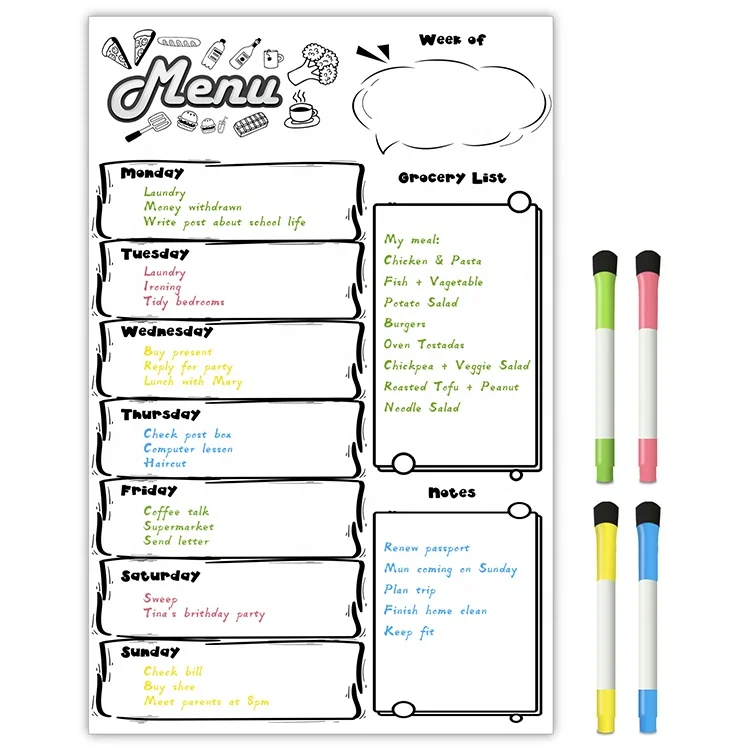 Menu
Week of
Monday
Laundry
Money withdrawn
Write post about school life
Tuesday
Laundry
Ironing
Tidy bedrooms
Wednesday
Buy present
Reply for party
Lunch with Mary
Thursday
Check post box
Computer lesson
Haircut
Friday
Coffee talk
Supermarket
Send letter
Saturday
Sweep
Tina's brithday party
Sunday
Check bill
Buy shoe
Meet parents at 8pm
Grocery List
My meal:
Chicken & Pasta
Fish + Vagetable
Potato Salad
Burgers
Oven Tostadas
Chickpea + Veggie Salad
Roasted Tofu + Peanut
Noodle Salad
Notes
Renew passport
Mun coming on Sunday
Plan trip
Finish home clean
Keep fit